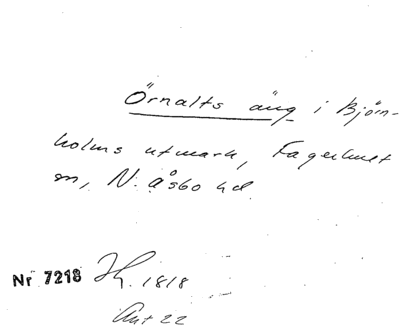 Örnalts äng i Björn-
holms utmark, Fagerhult
sn, N. Åsbo hd.
Nr 7218 Jh. 1818
Akt 22